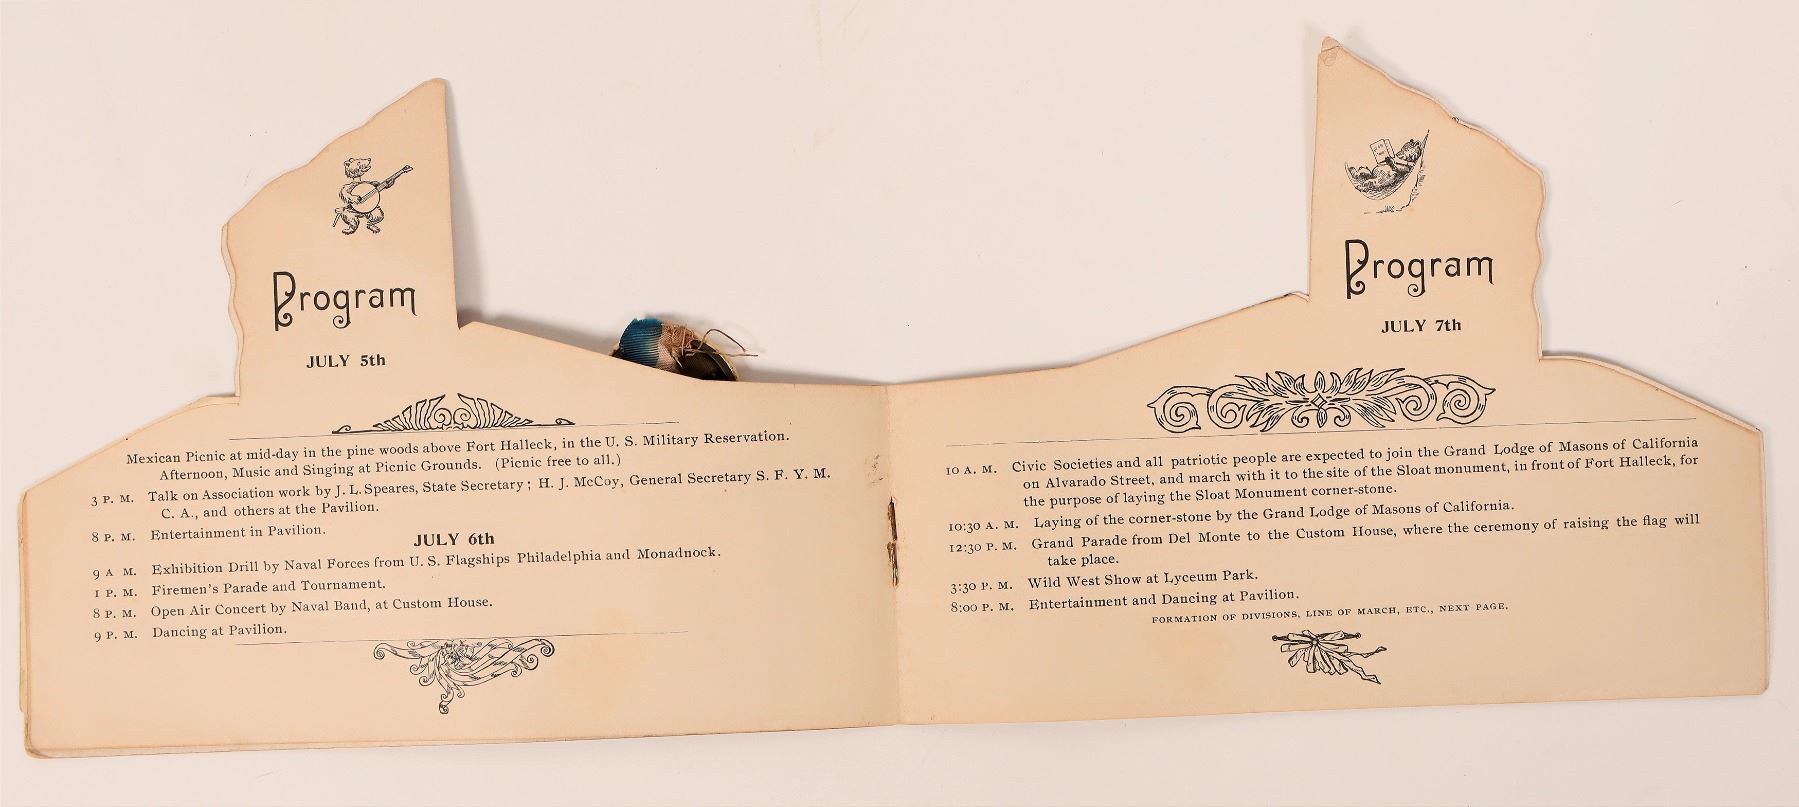 Program
JULY 5th
Mexican Picnic at mid-day in the pine woods above Fort Halleck, in the U. S. Military Reservation.
Afternoon, Music and Singing at Picnic Grounds. (Picnic free to all.)
3 P. M. Talk on Association work by J. L. Speares, State Secretary; H. J. McCoy, General Secretary S. F. Y. M.
C. A., and others at the Pavilion.
8 P. M. Entertainment in Pavilion.
JULY 6th
9 A M. Exhibition Drill by Naval Forces from U. S. Flagships Philadelphia and Monadnock.
1 P. M. Firemen's Parade and Tournament.
8 P. M. Open Air Concert by Naval Band, at Custom House.
9 P. M. Dancing at Pavilion.
Program
JULY 7th
10 A. M. Civic Societies and all patriotic people are expected to join the Grand Lodge of Masons of California
on Alvarado Street, and march with it to the site of the Sloat monument, in front of Fort Halleck, for
the purpose of laying the Sloat Monument corner-stone.
10:30 A. M. Laying of the corner-stone by the Grand Lodge of Masons of California.
12:30 P. M. Grand Parade from Del Monte to the Custom House, where the ceremony of raising the flag will
take place.
3:30 P. M. Wild West Show at Lyceum Park.
8:00 P. M. Entertainment and Dancing at Pavilion.
FORMATION OF DIVISIONS, LINE OF MARCH, ETC., NEXT PAGE.